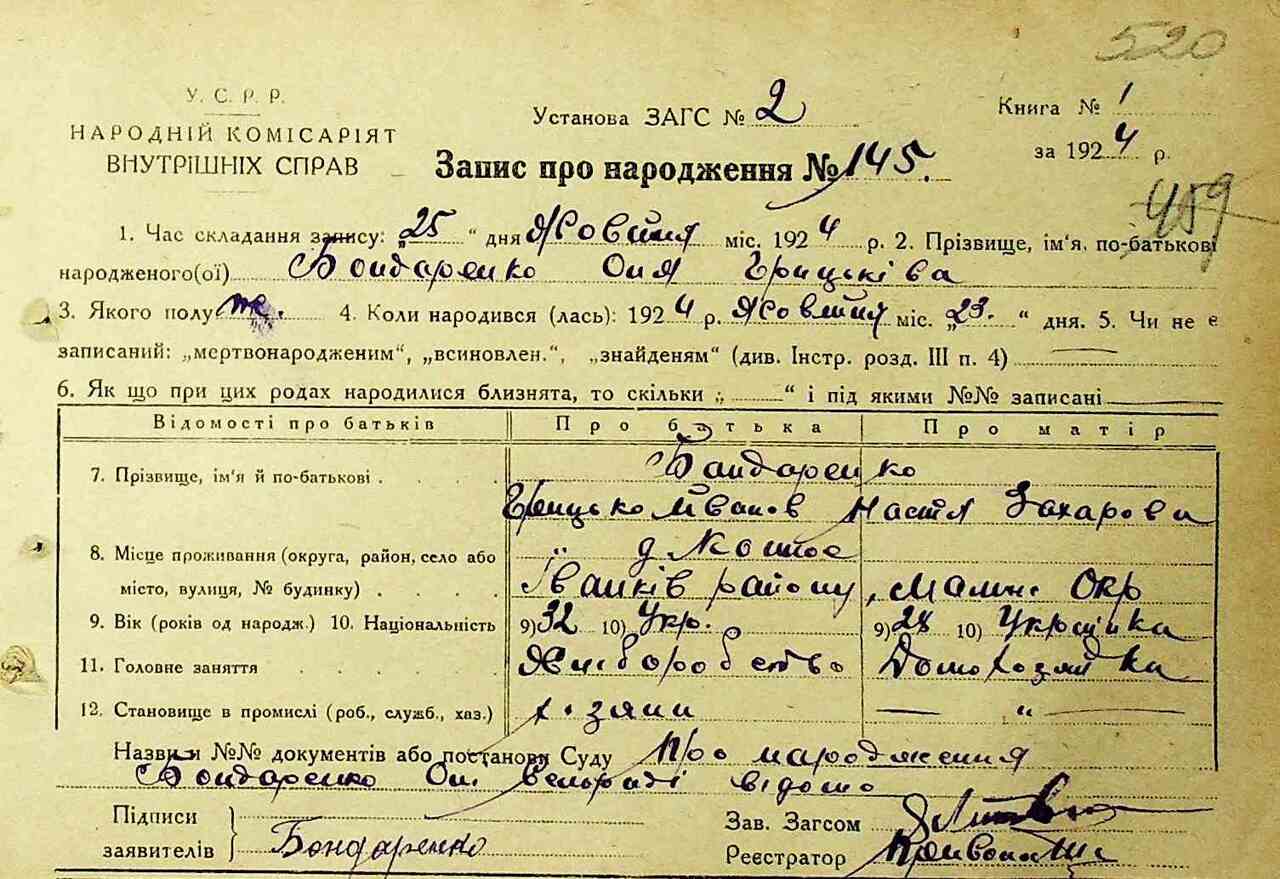 520
У. С. Р. Р.
НАРОДНІЙ КОМІСАРІЯТ
ВНУТРІШНІХ СПРАВ
Установа ЗАГС № 2
Книга № 1
за 1924 р.
Запис про народження № 145.
459
1. Час складання запису: „25“ дня Жовтня міс. 1924 р. 2. Прізвище, ім'я, по-батькові
народженого(ої) Бондаренко Оля Грицьківа
3. Якого полу ж. 4. Коли народився (лась): 1924 р. Жовтня міс. „23.“ дня. 5. Чи не є
записаний: „мертвонародженим“, „всиновлен.“, „знайденям“ (див. Інстр. розд. III п. 4)
6. Як що при цих родах народилися близнята, то скільки „ “ і під якими №№ записані
Відомості про батьків Про батька Про матір
7. Прізвище, ім'я й по-батькові . . . . Бондаренко
Грицько Иванов Настя Захарова
8. Місце проживання (округа, район, село або „ д.
місто, вулиця, № будинку) . . . . Іванків району, Малинс Окр
9. Вік (років од народж.) 10. Національність 9) 32 10) Укр. 9) 28 10) Українка
11. Головне заняття . . . . Хліборобство Домохозяйка
12. Становище в промислі (роб., служб., хаз.) хозяин — „ —
Назви й №№ документів або постанови Суду Про народження
Бондаренко Олі сельраді відомо
Підписи
заявителів } Бондаренко
Зав. Загсом
Реєстратор